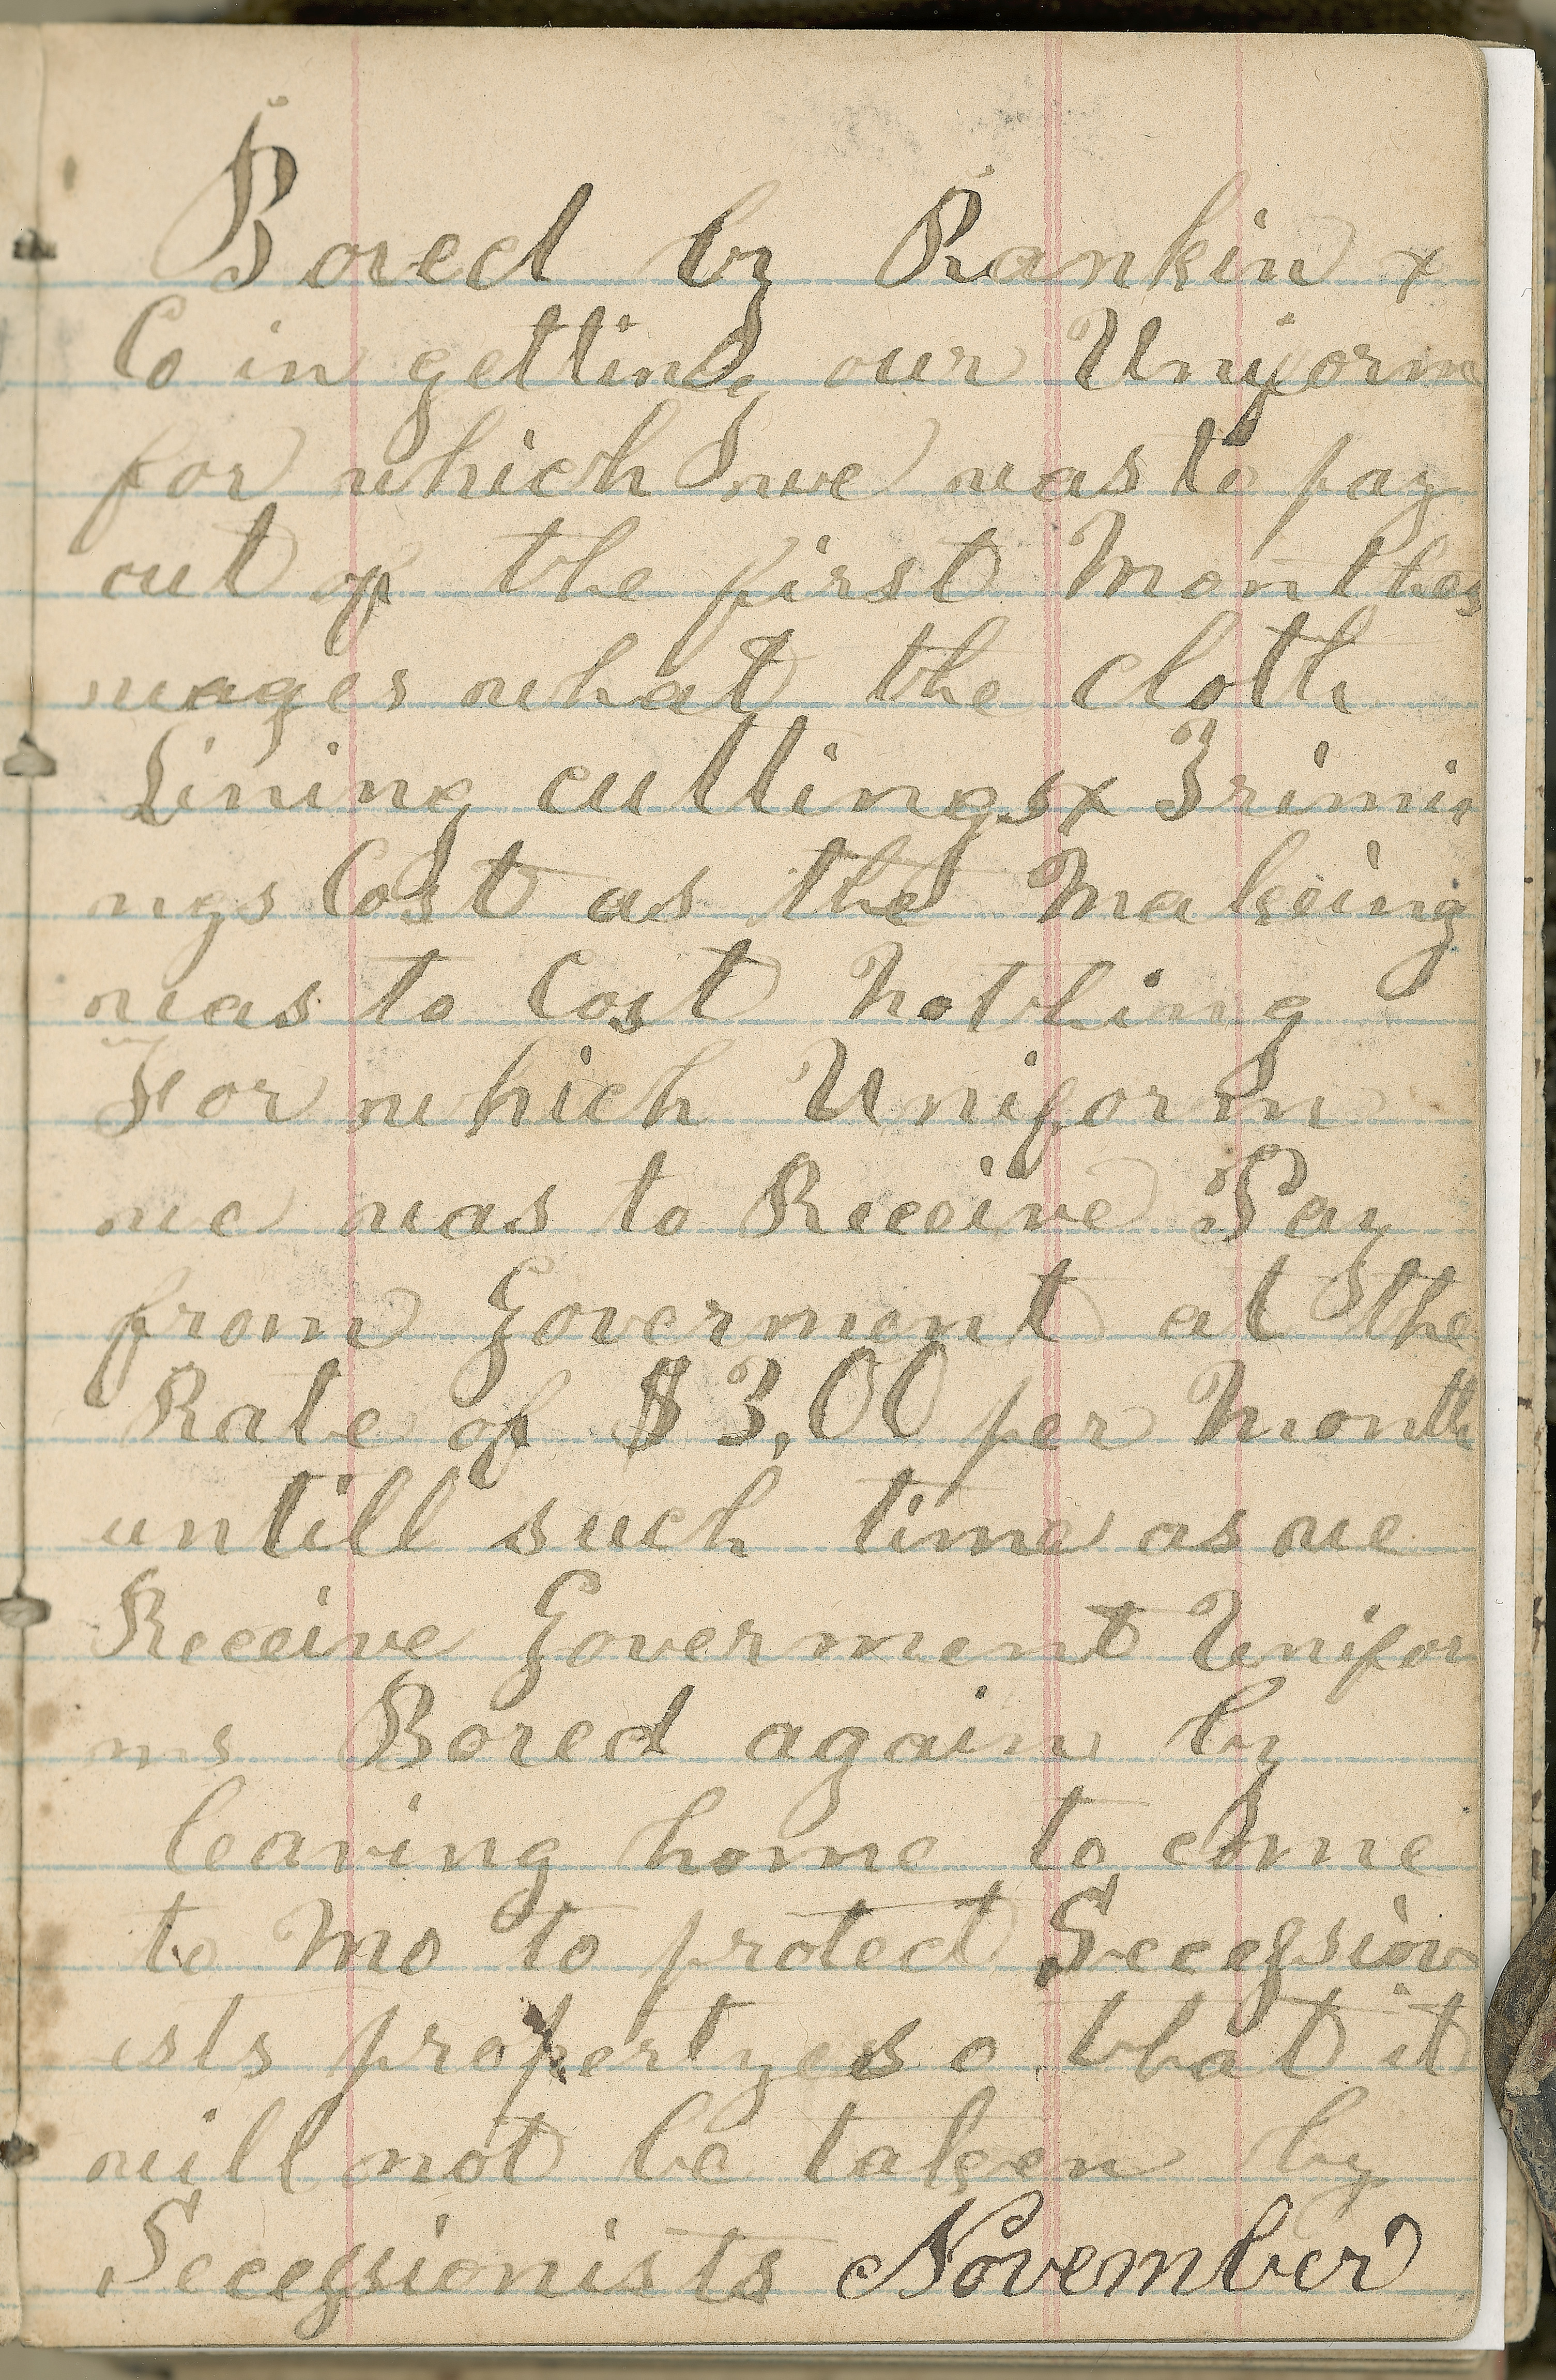 Bored by Rankin &
Co in getting our Uniform
for which we was to pay
out of the first Monthes
wages what the cloth
Lining cuttings & Trimi
ngs Cost as the Makeing
was to Cost Nothing
For which Uniform
we was to Receive Pay
from Goverment at the
Rate of $3,00 per Month
untill such time as we
Receive Goverment Unifor
ms Bored again by
leaving home to come
to Mo to protect Secession
ists propertyes o that it
will not be taken by
Secessionists November